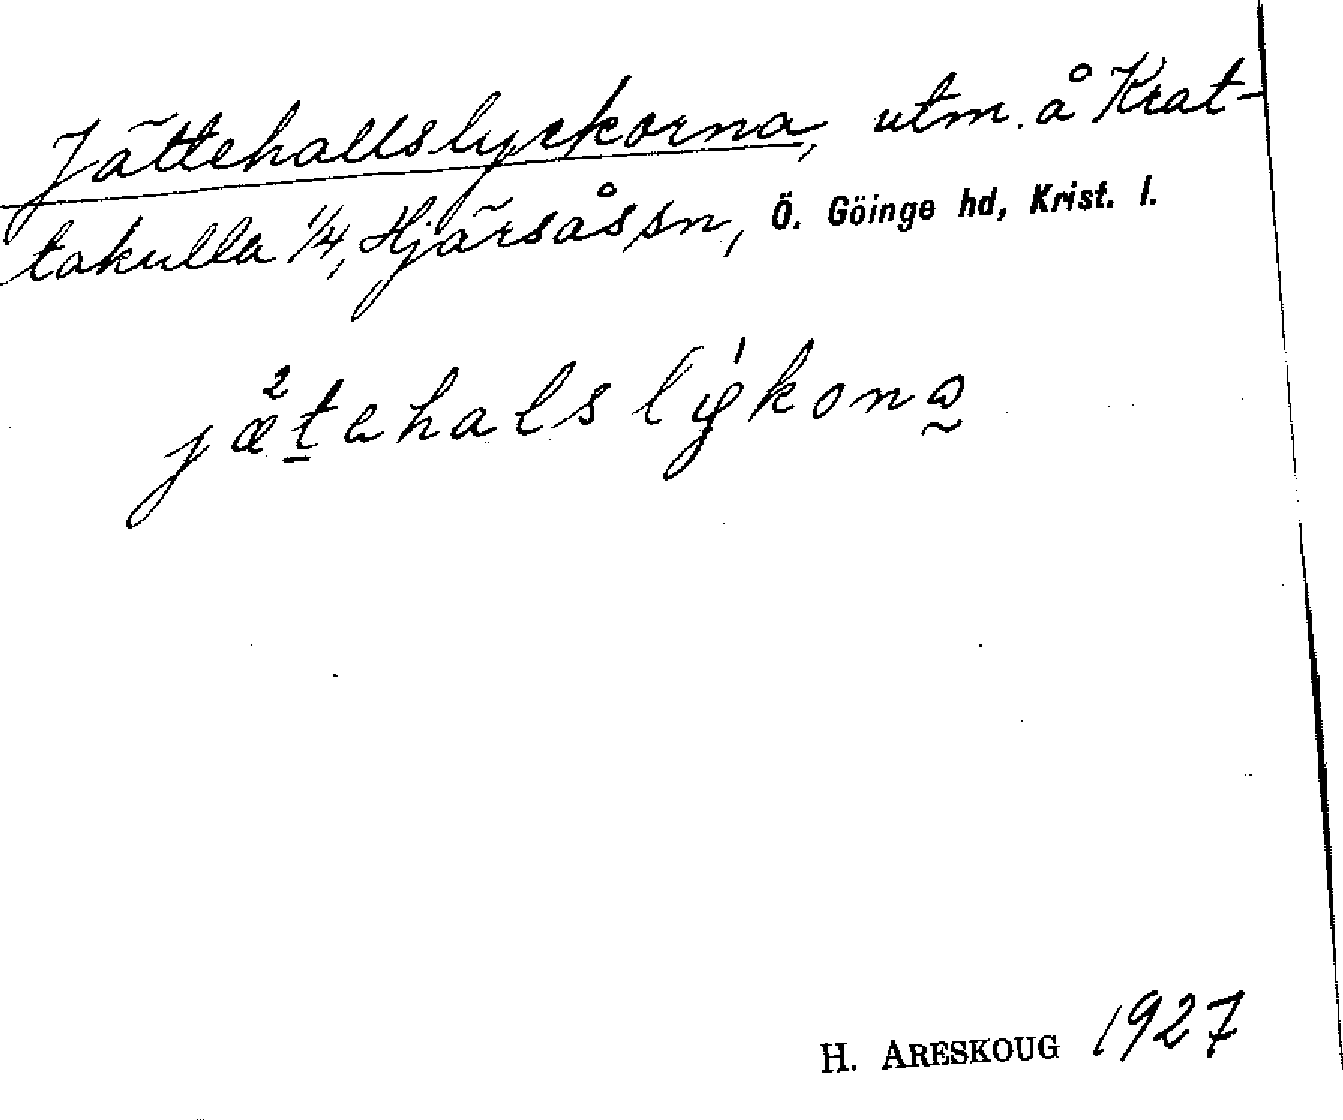 Jättehallslyckorna, utm. å Krat-
takulla 1/4, Hjärsås sn, Ö. Göinge hd, Krist. l.
jætehalslykona
H. ARESKOUG 1927